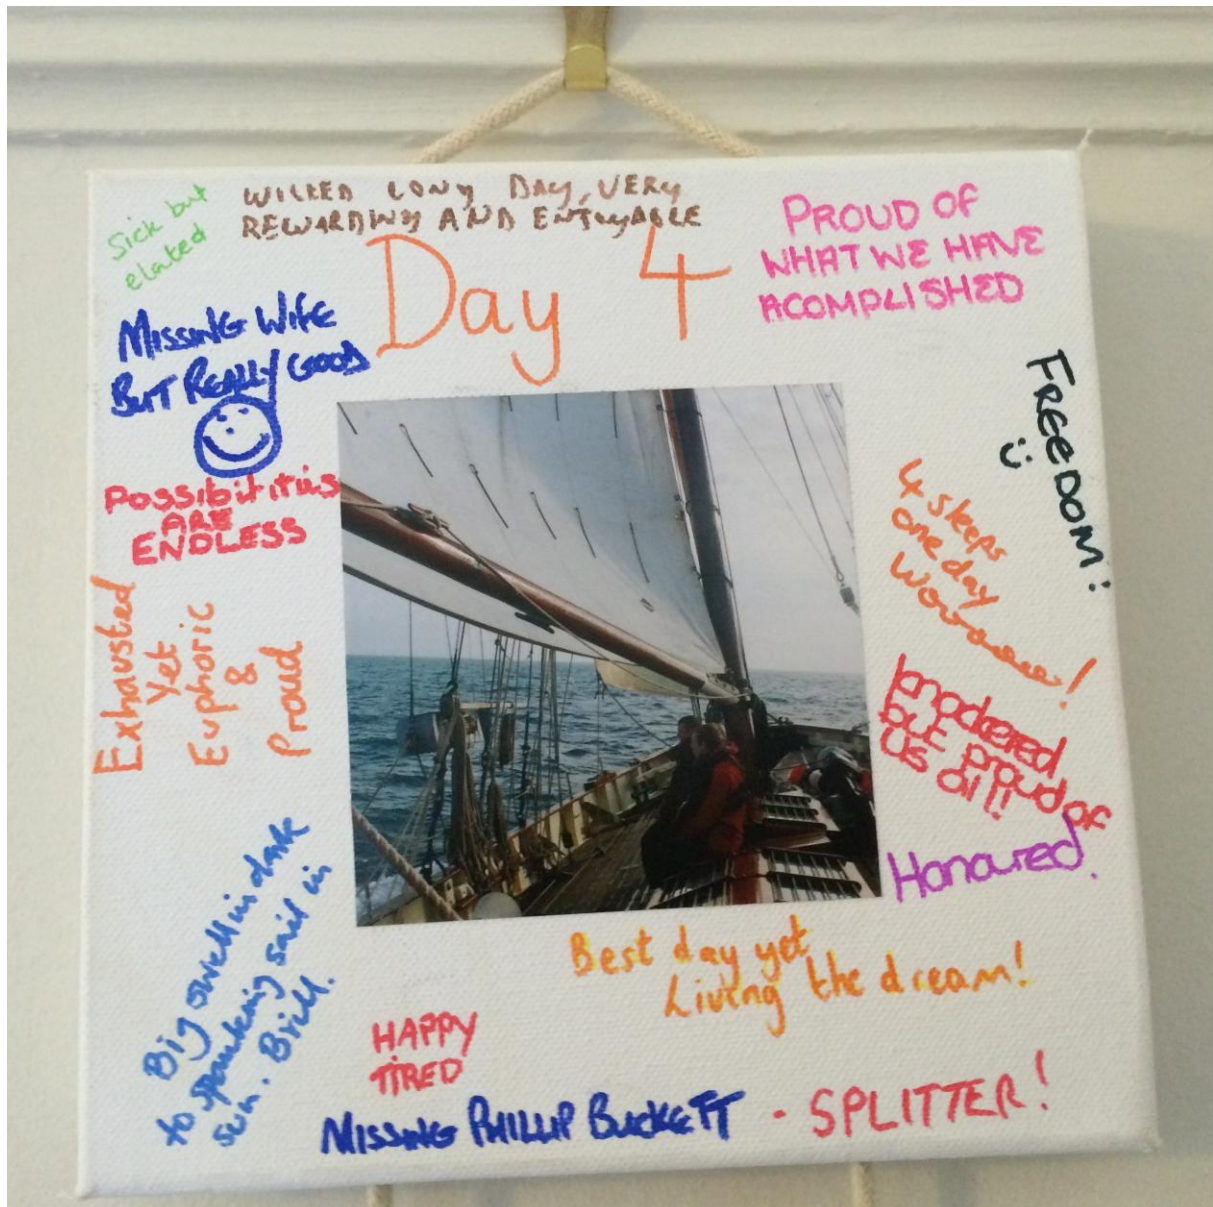 Sick but
elated
WICKED LONG DAY, VERY
REWARDING AND ENJOYABLE
Day 4
PROUD OF
WHAT WE HAVE
ACOMPLISHED
MISSING WIFE
BUT REALLY GOOD
FREEDOM!
POSSIBILITIES
ARE
ENDLESS
4 sleeps
one day
Woooaaa!
Exhausted
Yet
Euphoric
&
Proud
knackered
but proud of
us all!
Honoured.
Big swell in dark
to spanking sail in
sun. Brill.
Best day yet
Living the dream!
HAPPY
TIRED
MISSING PHILLIP BUCKETT - SPLITTER!